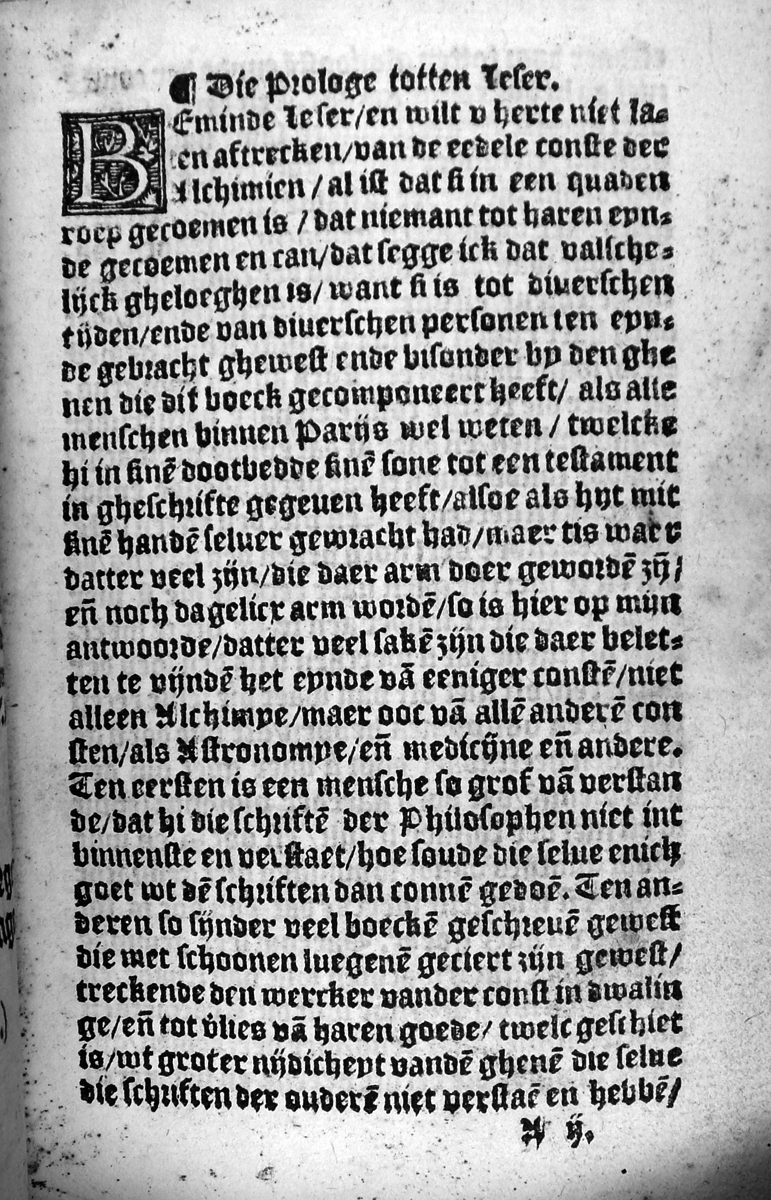 ¶ Die Prologe totten leser.
BEminde leser/en wilt v herte niet la-
ten aftrecken/van de eedele conste der
Alchimien/al ist dat si in een quaden
roep gecoemen is/dat niemant tot haren eyn-
de gecoemen en can/dat segge ick dat valsche-
lijck gheloeghen is/want si is tot diuerschen
tijden/ende van diuerschen personen ten eyn-
de gebracht ghewest ende bisonder by den ghe
nen die dit boeck gecomponeert heeft/ als alle
menschen binnen Parijs wel weten/twelcke
hi in sinē dootbedde sinē sone tot een testament
in gheschrifte gegeuen heeft/alsoe als hyt mit
sinē handē seluer gewracht had/maer tis waer
datter veel zijn/die daer arm doer gewordē zȳ/
eñ noch dagelicx arm wordē/so is hier op mijn
antwoorde/datter veel sakē zijn die daer belet-
ten te vijndē het eynde vā eeniger constē/niet
alleen Alchimye/maer ooc vā allē anderē con
sten/als Astronomye/eñ medicijne eñ andere.
Ten eersten is een mensche so grof vā verstan
de/dat hi die schriftē der Philosophen niet int
binnenste en verstaet/hoe soude die selue enich
goet wt dē schriften dan connē gedoē. Ten an-
deren so sijnder veel boeckē geschreuē gewest
die met schoonen luegenē geciert zijn gewest/
treckende den wercker vander const in dwalin
ge/eñ tot v̄lies vā haren goede/twelc geschiet
is/wt groter nijdicheyt vandē ghenē die selue
die schriften der ouderē niet verstaē en hebbē/
A ij.